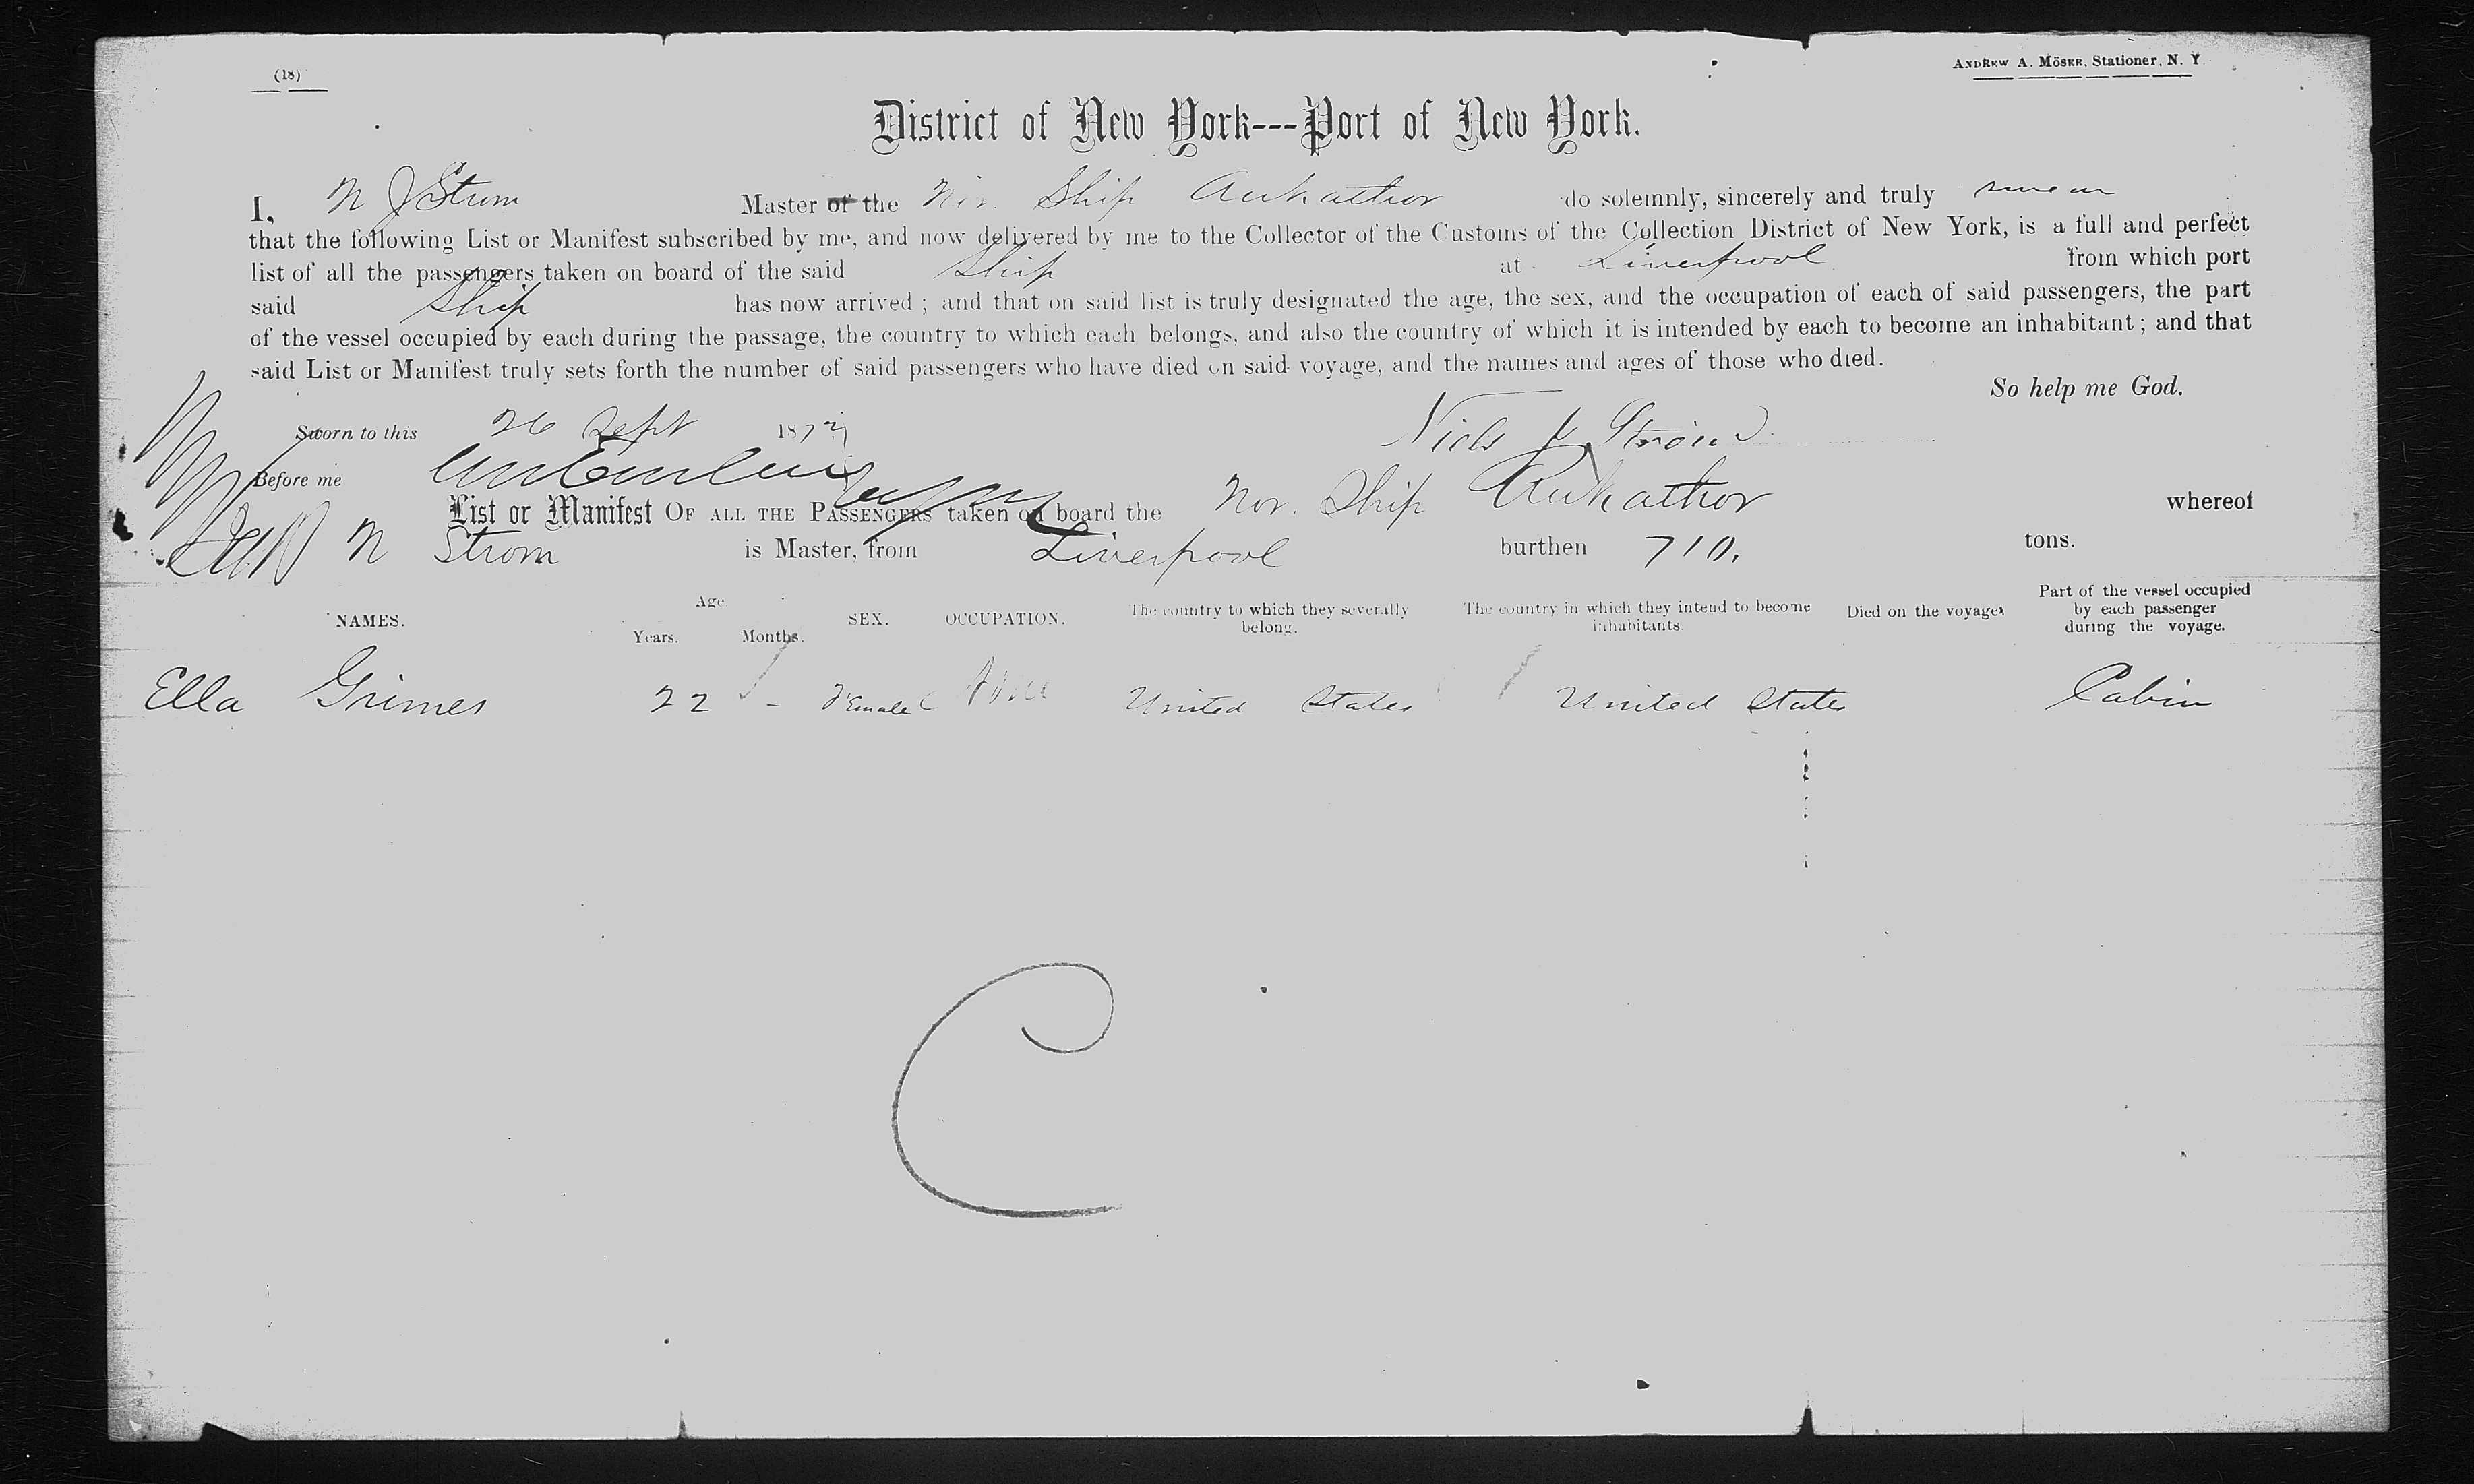 (18)
ANDREW A. MÖSER, Stationer, N. Y
District of New York---Port of New York.
I, N J Strom Master of the Nor. Ship do solemnly, sincerely and truly swear
that the following List or Manifest subscribed by me, and now delivered by me to the Collector of the Customs of the Collection District of New York, is a full and perfect
list of all the passengers taken on board of the said Ship at Liverpool from which port
said Ship has now arrived ; and that on said list is truly designated the age, the sex, and the occupation of each of said passengers, the part
of the vessel occupied by each during the passage, the country to which each belongs, and also the country of which it is intended by each to become an inhabitant ; and that
said List or Manifest truly sets forth the number of said passengers who have died on said voyage, and the names and ages of those who died.
So help me God.
Sworn to this 26 Sept 187
Niels J Ström
Before me
List or Manifest OF ALL THE PASSENGERS taken on board the Nor. Ship whereof
N Strom is Master, from Liverpool burthen 710. tons.
NAMES. Age. Years. Months. SEX. OCCUPATION. The country to which they severally belong. The country in which they intend to become inhabitants. Died on the voyage. Part of the vessel occupied by each passenger during the voyage.
Ella Grimes 22 - Female None United States United States Cabin
C